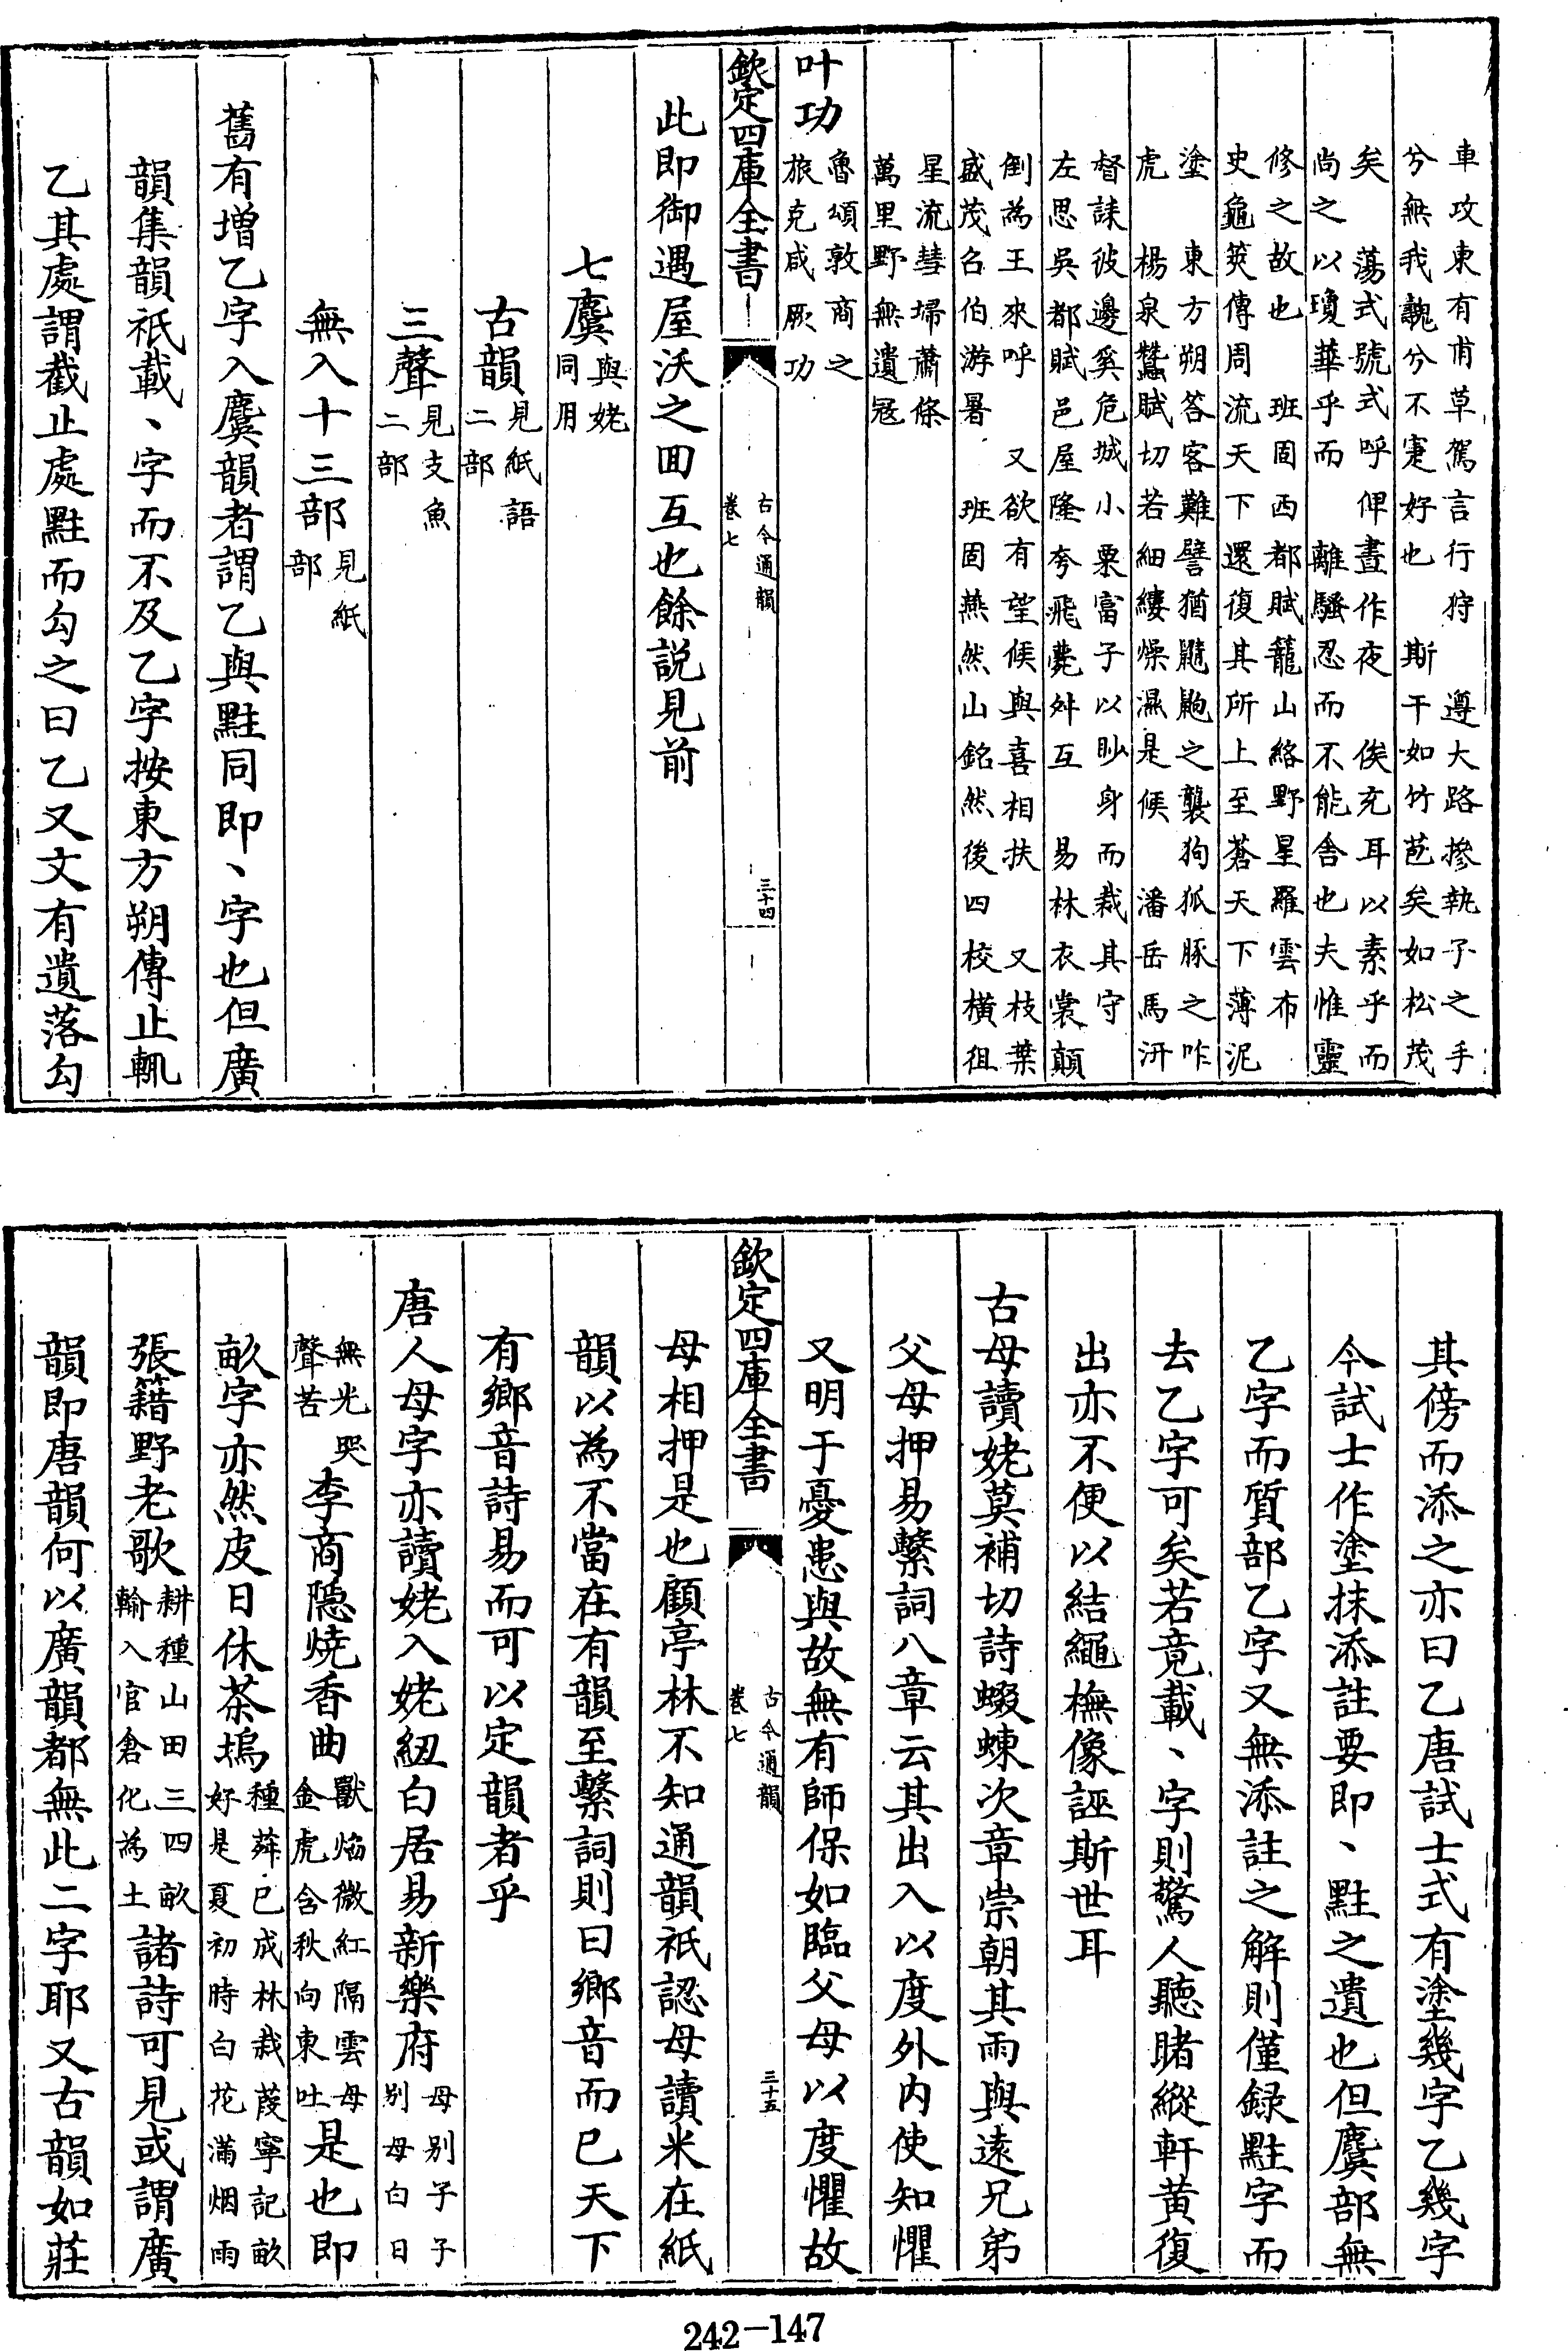 車攻東有甫草駕言行狩　遵大路摻執子之手
兮無我魗兮不寁好也　斯干如竹苞矣如松茂
矣　蕩式號式呼俾晝作夜　俟充耳以素乎而
尚之以瓊華乎而　離騷忍而不能舍也夫惟靈
修之故也　班固西都賦籠山絡野星羅雲布
史龜筴傳周流天下還復其所上至蒼天下薄泥
塗　東方朔答客難譬猶鼱鼩之襲狗孤豚之咋
虎　楊泉蠶賦切若細縷燥濕是候　潘岳馬汧
督誄彼邊奚危城小粟富子以眇身而裁其守
左思吳都賦邑屋隆夸飛甍舛互　易林衣裳顛
倒為王來呼　又欲有望候與喜相扶　又枝葉
盛茂召伯游暑　班固燕然山銘然後四校橫徂
星流彗埽蕭條
萬里野無遺寇
叶功
魯頌敦商之
旅克咸厥功
欽定四庫全書
古今通韻
卷七
三十四
此即御遇屋沃之回互也餘說見前
七麌
與姥
同用
古韻
見紙語
二部
三聲
見支魚
二部
無入十三部
見紙
部
舊有增乙字入麌韻者謂乙與黈同即丶字也但廣
韻集韻祇載丶字而不及乙字按東方朔傳止輒
乙其處謂截止處黈而勾之曰乙又文有遺落勾
其傍而添之亦曰乙唐試士式有塗幾字乙幾字
今試士作塗抹添註要即丶黈之遺也但麌部無
乙字而質部乙字又無添註之解則僅録黈字而
去乙字可矣若竟載丶字則驚人聽睹縱軒黄復
出亦不便以結繩橅像誣斯世耳
古母讀姥莫補切詩蝃蝀次章崇朝其雨與遠兄弟
父母押易繫詞八章云其出入以度外内使知懼
又明于憂患與故無有師保如臨父母以度懼故
欽定四庫全書
古今通韻
卷七
三十五
母相押是也顧亭林不知通韻祇認母讀米在紙
韻以為不當在有韻至繫詞則曰鄉音而已天下
有鄉音詩易而可以定韻者乎
唐人母字亦讀姥入姥紐白居易新樂府
母别子子
别母白日
無光哭
聲苦
李商隱燒香曲
獸焰微紅隔雲母
金虎含秋向東吐
是也即
畝字亦然皮日休茶塢
種莽已成林栽葭寧記畝
好是夏初時白花滿烟雨
張籍野老歌
耕種山田三四畝
輸入官倉化為土
諸詩可見或謂廣
韻即唐韻何以廣韻都無此二字耶又古韻如莊
242-147